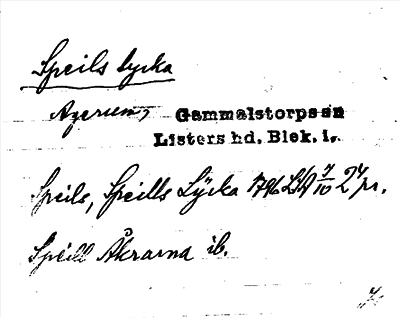 Speils lycka
Agerum, Gammalstorps sn
Listers hd. Blek. l.
Speils, Speills Lÿcka 1796 LSA 7/10 2 pr.
Speill Åkrarna ib.